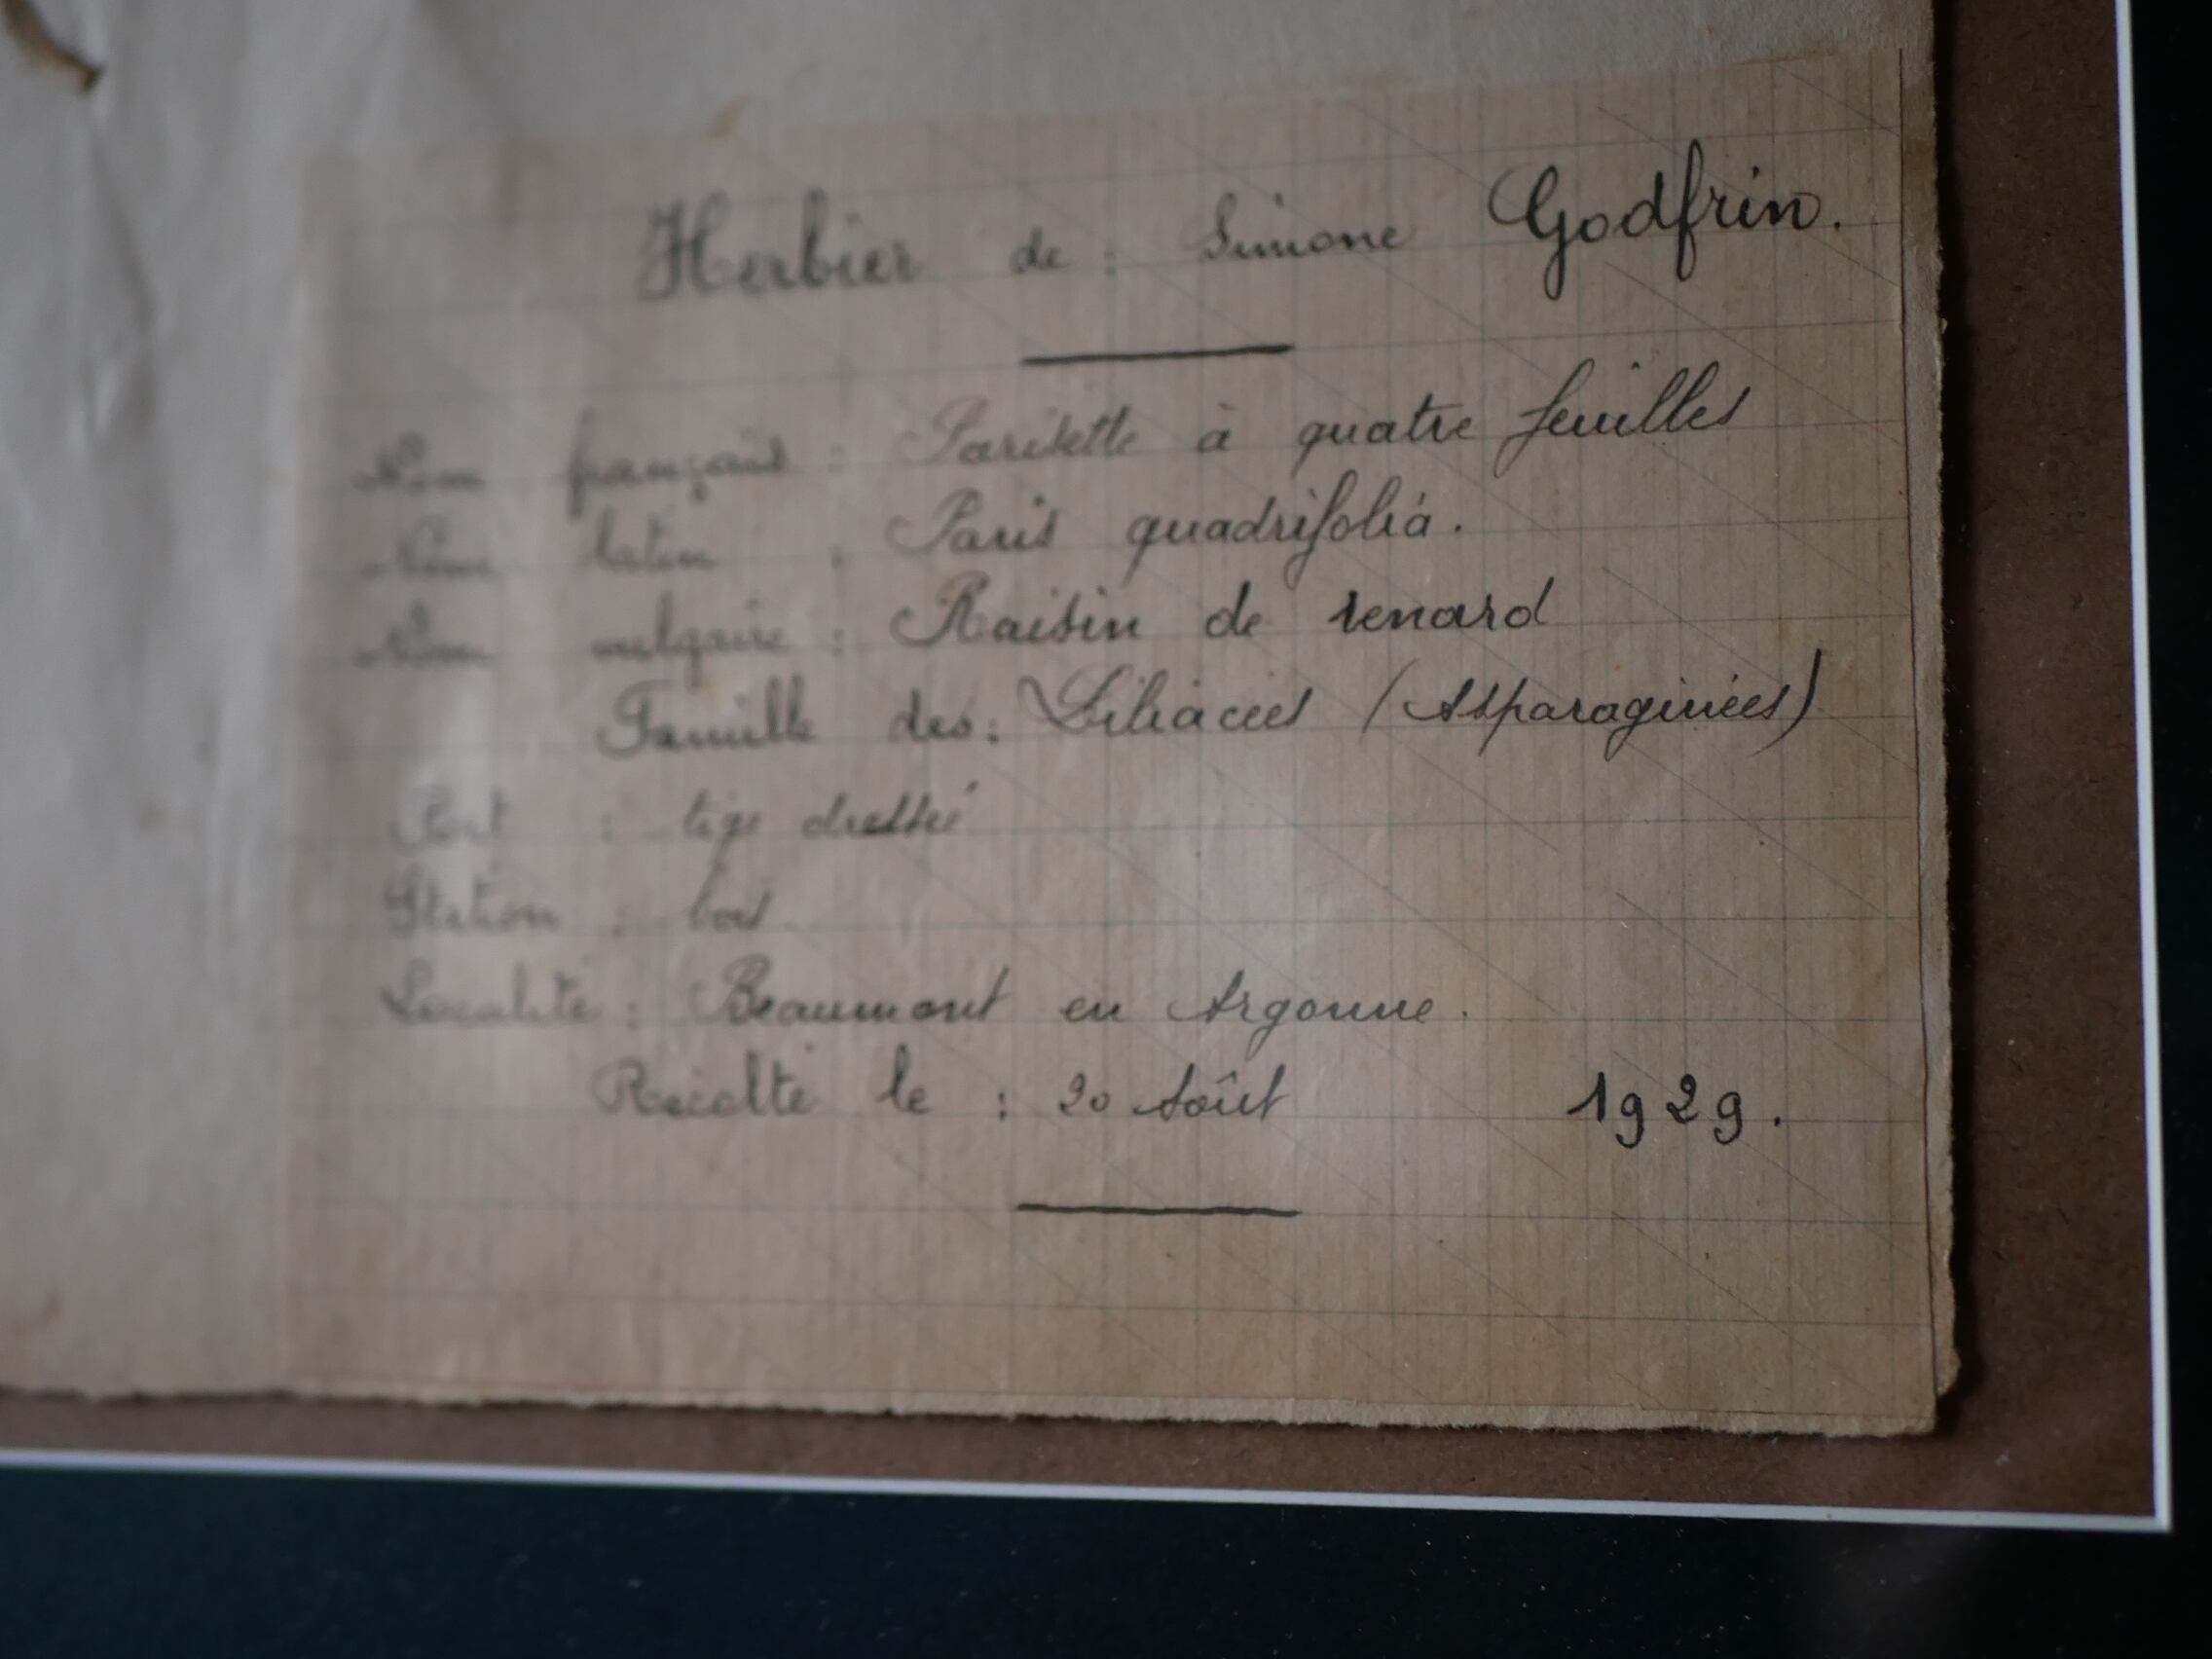 Herbier de : Simone Godfrin.
Nom français : Parisette à quatre feuilles
Nom latin : Paris quadrifolia.
Nom vulgaire : Raisin de renard
Famille des : Liliacées (Asparaginées)
Port : tige dressée
Station : bois
Localité : Beaumont en Argonne.
Récolté le : 20 Août 1929.